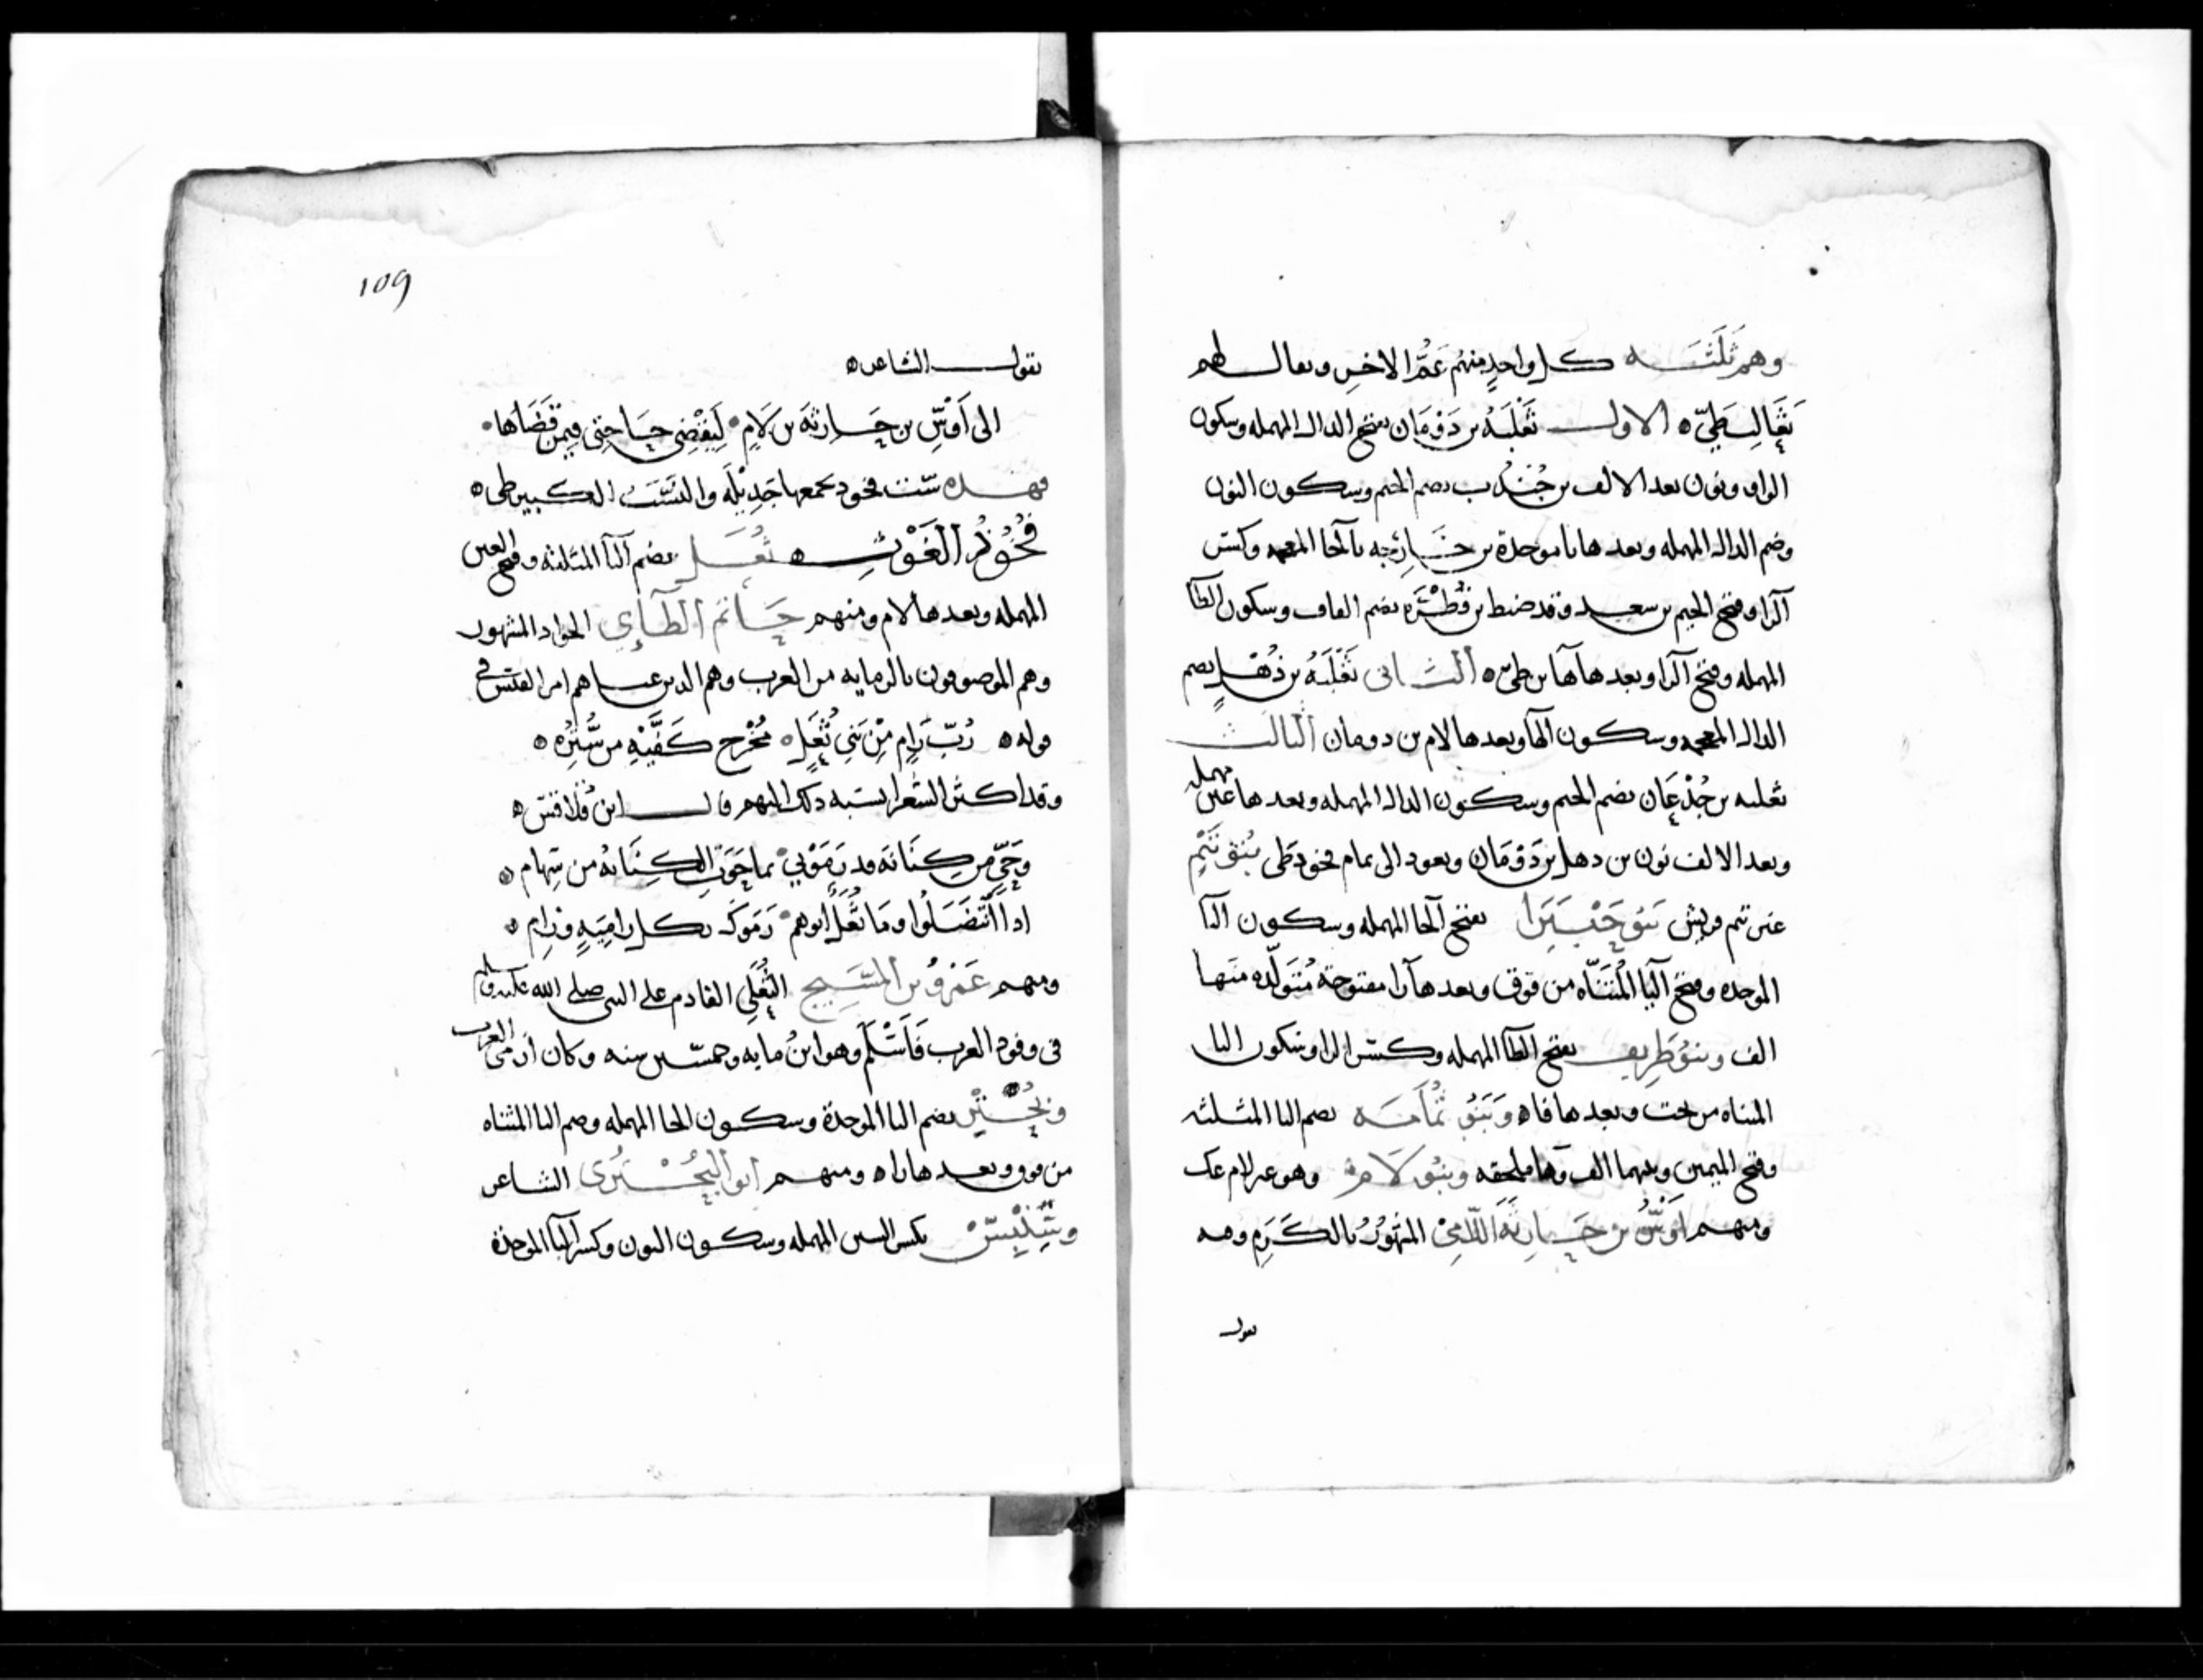 وهم ثلثه كل واحد منهم عمّ الاخر ويقال لهم
ثعالب طيّ ه الاول ثعلبه بن دومان بفتح الدال المهمله وسكون
الواو ونون بعد الالف بن جندب بضم الجيم وسكون النون
وضم الدال المهمله وبعدها با موحدة بن خارجه بالخا المعجمه وكسر
الرا وفتح الجيم بن سعد وقد ضبط بن فطره بضم الفاف وسكون الطا
المهمله وفتح الرا وبعدها ها بن طيّ ه الثانى ثعلبه بن ذهل بضم
الذال المعجمه وسكون الها وبعدها لام بن دومان الثالث
ثعلبه بن جدعان بضم الجيم وسكون الدال المهمله وبعدها عين مهمله
وبعد الالف نون بن دهل بن دومان ويعود الى تمام فخود طى بنو تيم
غير تيم قريش بنو حبترا بفتح الحا المهمله وسكون البا
الموحده وفتح التا المثناه من فوق وبعدها را مفتوحة متولده منها
الف وبنو طريف بفتح الطا المهمله وكسر الرا وسكون اليا
المثناه من تحت وبعدها فا ه وبنو ثمامه بضم الثا المثلثه
وفتح الميمين وبينهما الف وها ملحقه وبنو لام وهو غير لام عك
ومنهم اوس بن حارثة اللامى المشهور بالكرم وفيه
يقول
109
يقول الشاعر ه
الى اوس بن حارثة بن لام ليقضى حاجتى فيمن قضاها
فهذه ست فخود يجمعها جديله والنسب الكبير طى ه
فخوذ الغوث ه ثعل بضم الثا المثلثه وفتح العين
المهمله وبعدها لام ومنهم حاتم الطاي الجواد المشهور
وهم الموصوفون بالرمايه من العرب وهم الدين عناهم امرا القيس فى
قوله ه ربّ رام من بني ثعل ه مخرج كفّيه من ستره ه
وقد اكثر الشعرا بنسبه دلك اليهم قال ابن قلاقس ه
وحىّ من كنانة قد رمونى بما حوت الكنانة من سهام ه
ادا انتضلوا وما ثعل ابوهم رموك بكل رامية ورام ه
ومنهم عمرو بن المسبح الثعلى القادم على النبى صلى الله عليه وسلم
فى وفود العرب فاسلم وهو ابن مايه وخمسين سنه وكان ارمى العرب
وبحتر بضم البا الموحدة وسكون الحا المهمله وضم التا المثناه
من فوق وبعدها را ه ومنهم ابو البحترى الشاعر
وسنبس بكسر السين المهمله وسكون النون وكسر البا الموحدة